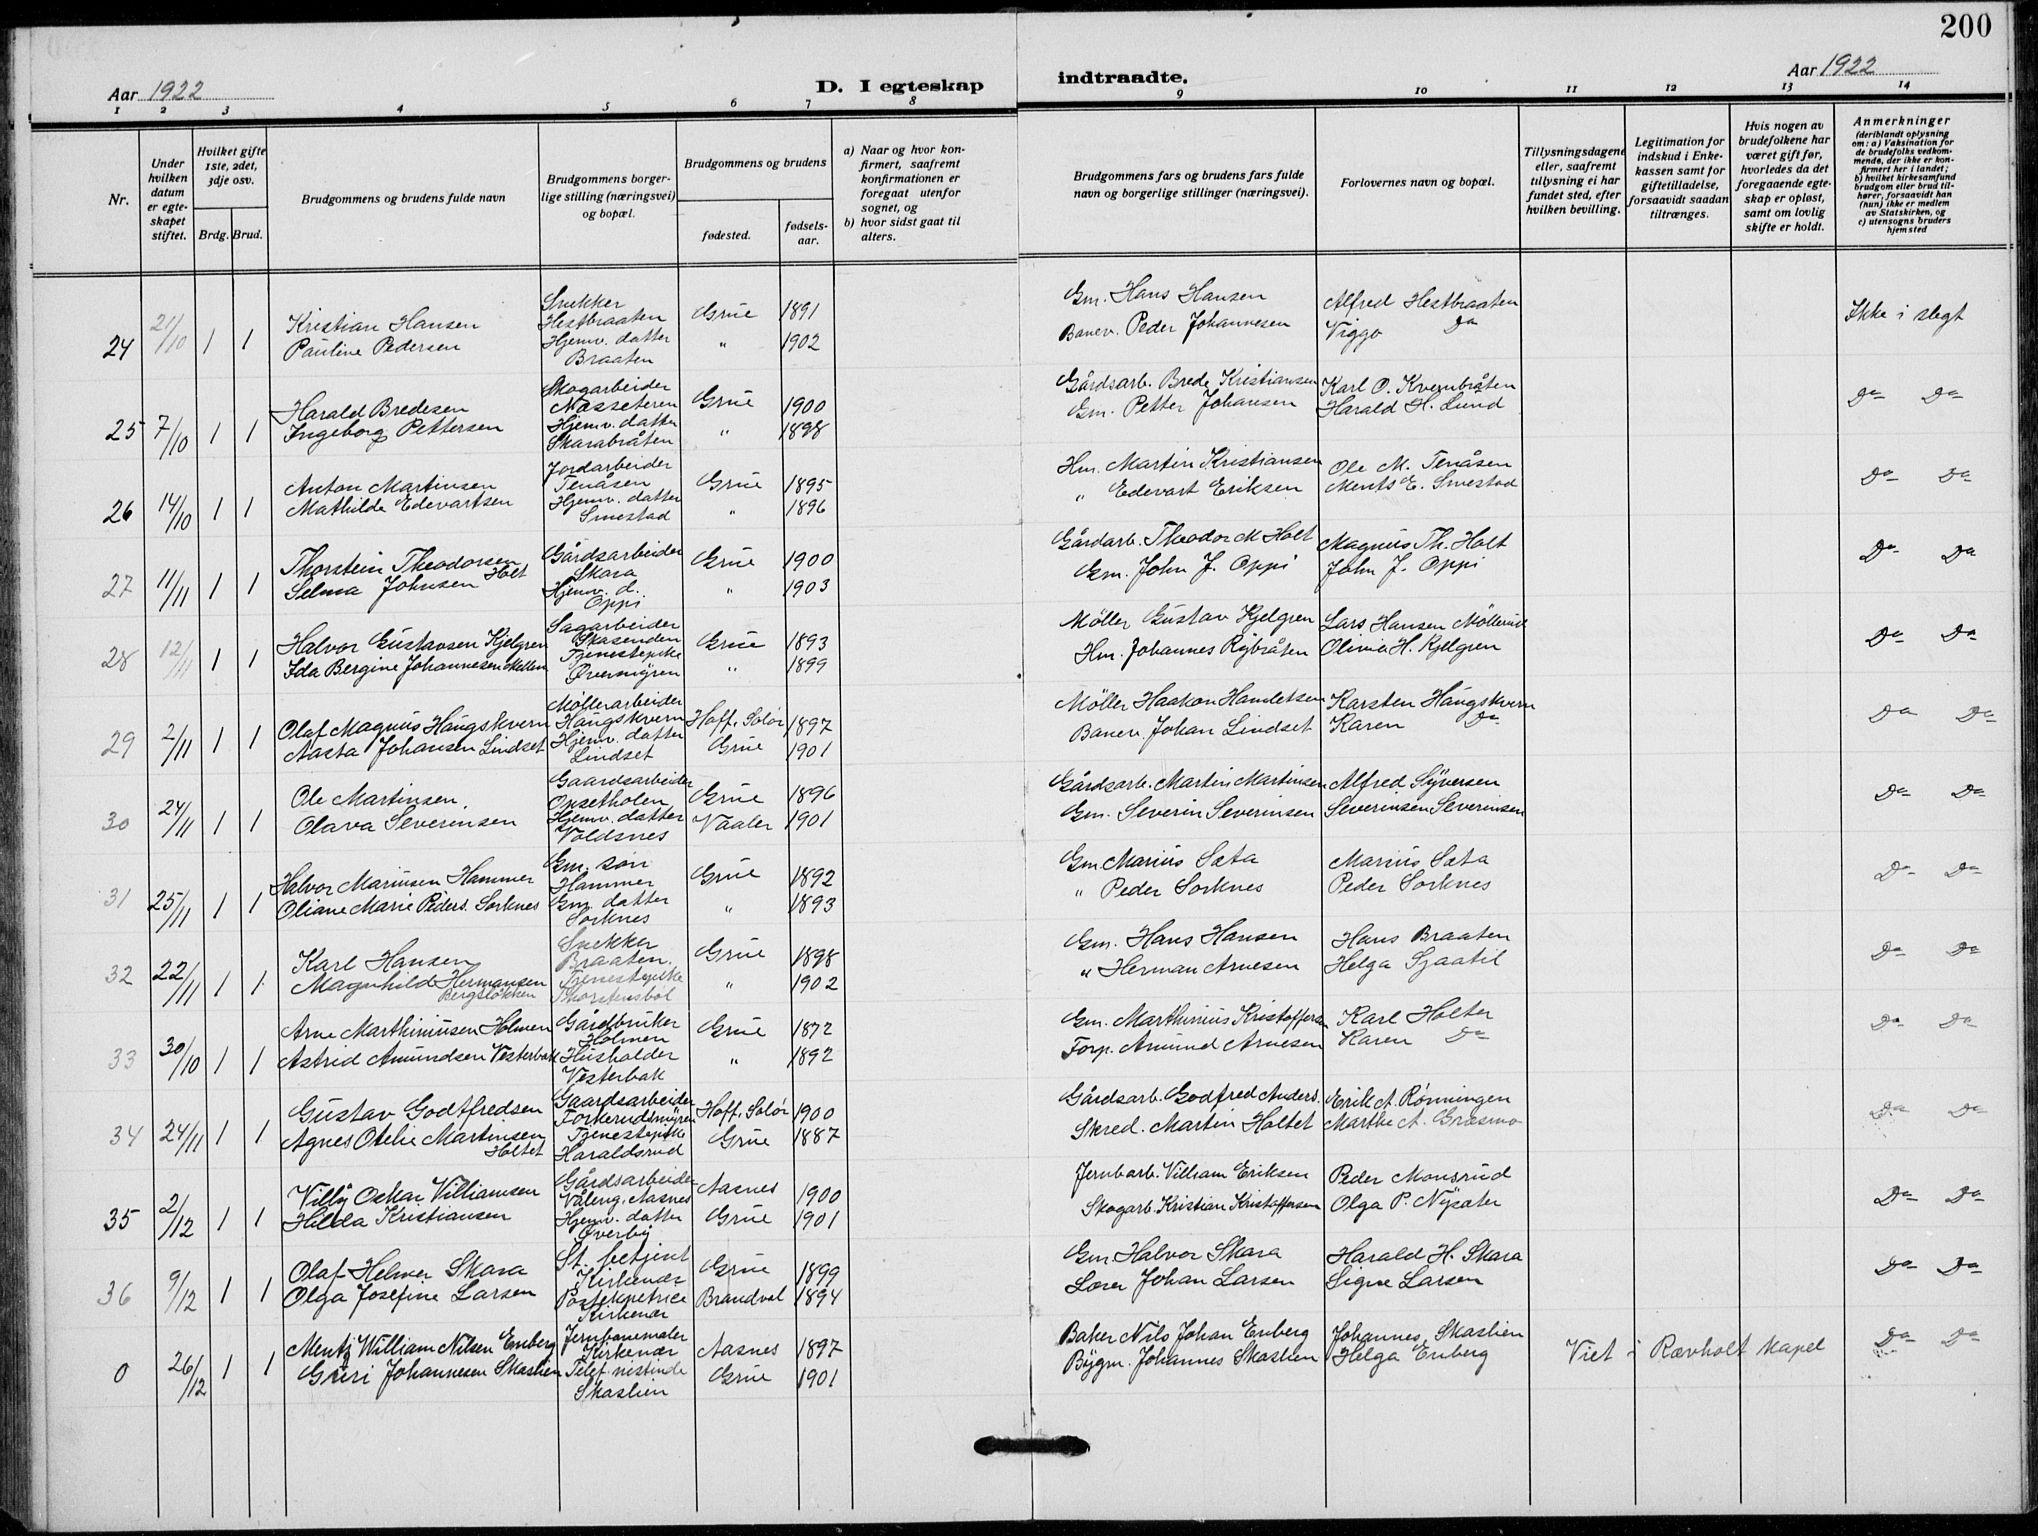 200
Aar 1922
D. I egteskap
indtraadte.
Aar 1922
1 2 3 4 5 6 7 8 9 10 11 12 13 14
Nr.
Under hvilken datum er egte-skapet stiftet.
Hvilket gifte 1ste, 2det, 3dje osv.
Brdg. Brud.
Brudgommens og brudens fulde navn
Brudgommens borger-lige stilling (næringsvei) og bopæl.
Brudgommens og brudens
fødested.
fødsels-aar.
a) Naar og hvor kon-firmert, saafremt konfirmationen er foregaat utenfor sognet, og
b) hvor sidst gaat til alters.
Brudgommens fars og brudens fars fulde navn og borgerlige stillinger (næringsvei).
Forlovernes navn og bopæl.
Tillysningsdagene eller, saafremt tillysning ei har fundet sted, efter hvilken bevilling.
Legitimation for indskud i Enke-kassen samt for giftetilladelse, forsaavidt saadan tiltrænges.
Hvis nogen av brudefolkene har været gift før, hvorledes da det foregaaende egte-skap er opløst, samt om lovlig skifte er holdt.
Anmerkninger
(deriblandt oplysning om: a) Vaksination for de brudefolks vedkom-mende, der ikke er kon-firmert her i landet; b) hvilket kirkesamfund brudgom eller brud til-hører, forsaavidt han (hun) ikke er medlem av Statskirken, og c) utensogns bruders hjemsted
24 21/10 1 1 Kristian Hansen Snekker Hestbraaten Grue 1891 Gm. Hans Hansen Alfred Hestbraaten Ikke i slegt
Pauline Pedersen Hjemv. datter Braaten " 1902 Banev. Peder Johannesen Viggo Do
25 7/10 1 1 Harald Bredesen Skogarbeider Næsseteren Grue 1900 Gårdsarb. Brede Kristiansen Karl O. Kvernbråten Do Do
Ingeborg Pettersen Hjemv. datter Skarabråten " 1898 Gm. Petter Johansen Harald H. Lund
26 14/10 1 1 Anton Martinsen Jordarbeider Tenåsen Grue 1895 Hm. Martin Kristiansen Ole M. Tenåsen Do Do
Mathilde Edevartsen Hjemv. datter Smestad " 1896 " Edevart Eriksen Ments E. Smestad
27 11/11 1 1 Thorstein Theodorsen Holt Gårdsarbeider Skara Grue 1900 Gårdarb. Theodor M Holt Magnus Th. Holt Do Do
Selma Johnsen Hjemv. d. Oppi " 1903 Gm. John J. Oppi John J. Oppi
28 12/11 1 1 Halvor Gustavsen Kjelgren Sagarbeider Skasenden Grue 1893 Møller Gustav Kjelgren Lars Hansen Möllerud Do Do
Ida Bergine Johannesen Mellem Tjenestepike Øvermyren " 1899 Hm. Johannes Rybråten Olivia H. Kjelgren
29 2/11 1 1 Olaf Magnus Haugskvern Møllerarbeider Haugskvern Hoff, Solør 1897 Møller Haakon Hamletsen Karsten Haugskvern Do Do
Aasta Johansen Lindset Hjemv. datter Lindset Grue 1901 Banev. Johan Lindset Karen Do
30 24/11 1 1 Ole Martinsen. Gaardsarbeider Opsetholen Grue 1896 Gårdsarb. Martin Martinsen Alfred Syversen Do Do
Olava Severinsen Hjemv. datter Voldsnes Vaaler 1901 Gm. Severin Severinsen Severinsen Severinsen
31 25/11 1 1 Halvor Mariusen Hammer Gm. søn Hammer Grue 1892 Gm. Marius Sæta Marius Sæta Do Do
Oliane Marie Peders. Sorknes Gm. datter Sorknes " 1893 " Peder Sorknes Peder Sorknes
32 22/11 1 1 Karl Hansen Snekker Braaten. Grue 1898 Gm. Hans Hansen Hans Braaten Do Do
Magnhild Hermansen Bergsløkken Tjenestepike Thorstensbøl " 1902 " Herman Arnesen Helga Sjaatil
33 30/10 1 1 Arne Marthiniusen Holmen Gårdbruker Holmen Grue 1872 Gm. Marthinius Kristoffersen Karl Holter Do Do
Astrid Amundsen Vesterbak Husholder Vesterbak " 1892 Forp. Amund Arnesen Karen Do
34 24/11 1 1 Gustav Godtfredsen Gaardsarbeider Forkerudsmyren Hoff, Solør 1900 Gårdsarb. Godfred Anders. Erik A. Rønningen Do Do
Agnes Otelie Martinsen Holtet Tjenestepike Haraldsrud Grue 1887 Skred. Martin Holtet Marthe A. Græsmo
35 2/12 1 1 Villy Oskar Villiamsen Gårdsarbeider Våleng, Aasnes Aasnes 1900 Jernbarb. Villiam Eriksen Peder Monsrud Do Do
Hilda Kristiansen Hjemv. datter Øverby Grue 1901 Skogarb. Kristian Kristoffersen Olga P. Nysæter
36 9/12 1 1 Olaf Helmer Skara St. betjent Kirkenær Grue 1899 Gm. Halvor Skara Harald H. Skara Do Do
Olga Josefine Larsen Postekspetrice Kirkenær Brandval 1894 Lærer Johan Larsen Signe Larsen
0 26/12 1 1 Mentz William Nilsen Enberg Jernbanemaler Kirkenær Aasnes 1897 Baker Nils Johan Enberg Johannes Skaslien Viet i Rævholt kapel Do Do
Guri Johannesen Skaslien Telef. nistinde Skaslien Grue 1901 Bygm. Johannes Skaslien Helga Enberg